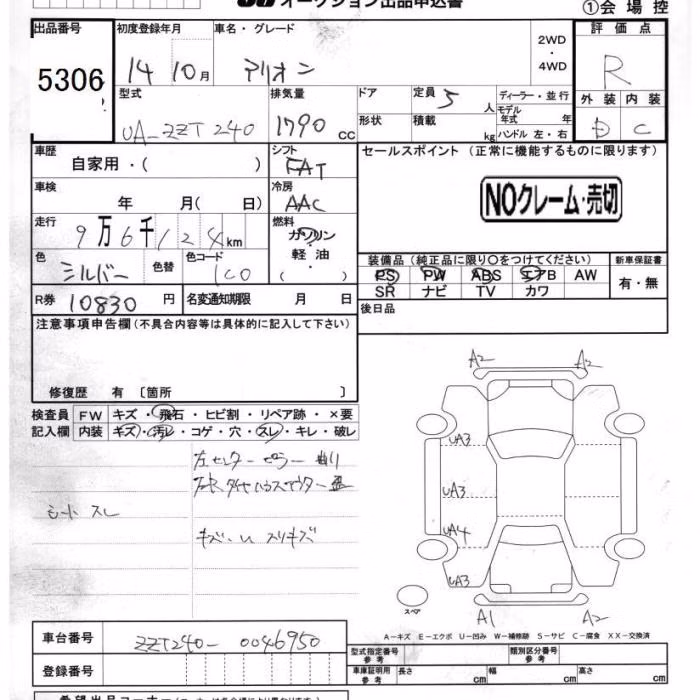 オークション出品申込書
①会場控
出品番号 初度登録年月 車名・グレード 2WD・4WD 評価点
5306 14 10月 アリオン R
型式 排気量 ドア 定員 5人 ディーラー・並行 外装 内装
UA-ZZT240 1790cc 形状 積載 kg モデル年式 年 ハンドル 左・右 D C
車歴 自家用・( ) シフト FAT セールスポイント (正常に機能するものに限ります)
車検 年 月( 日) 冷房 AAC NOクレーム・売切
走行 9万6千124km 燃料 ガソリン 軽油 ( ・ )
色 シルバー 色替 色コード 1C0 装備品(純正品に限り○をつけてください) 新車保証書
PS PW ABS エアB AW 有・無
SR ナビ TV カワ
R券 10830円 名変通知期限 月 日 後日品
注意事項申告欄(不具合内容等は具体的に記入して下さい)
修復歴 有 〔箇所 〕
検査員 FW キズ・飛石・ヒビ割・リペア跡・×要
記入欄 内装 キズ・汚レ・コゲ・穴・スレ・キレ・破レ
左センターピラー
シートスレ
キズ・U スリキズ
A2 A2
UA3
UA3
UA4
UA3
スペア A1 A2
A-キズ E-エクボ U-凹み W-補修跡 S-サビ C-腐食 XX-交換済
車台番号 ZZT240-0046950 型式指定番号 参考 類別区分番号 参考
登録番号 車庫証明用 参考 長さ cm 幅 cm 高さ cm